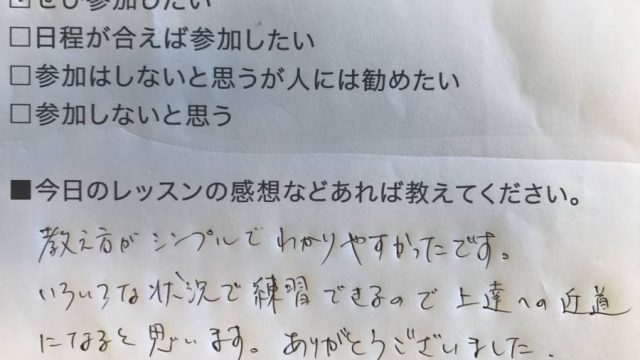 ぜひ参加したい
□日程が合えば参加したい
□参加はしないと思うが人には勧めたい
□参加しないと思う
■今日のレッスンの感想などあれば教えてください。
教え方がシンプルでわかりやすかったです。
いろいろな状況で練習できるので上達への近道
になると思います。ありがとうございました.